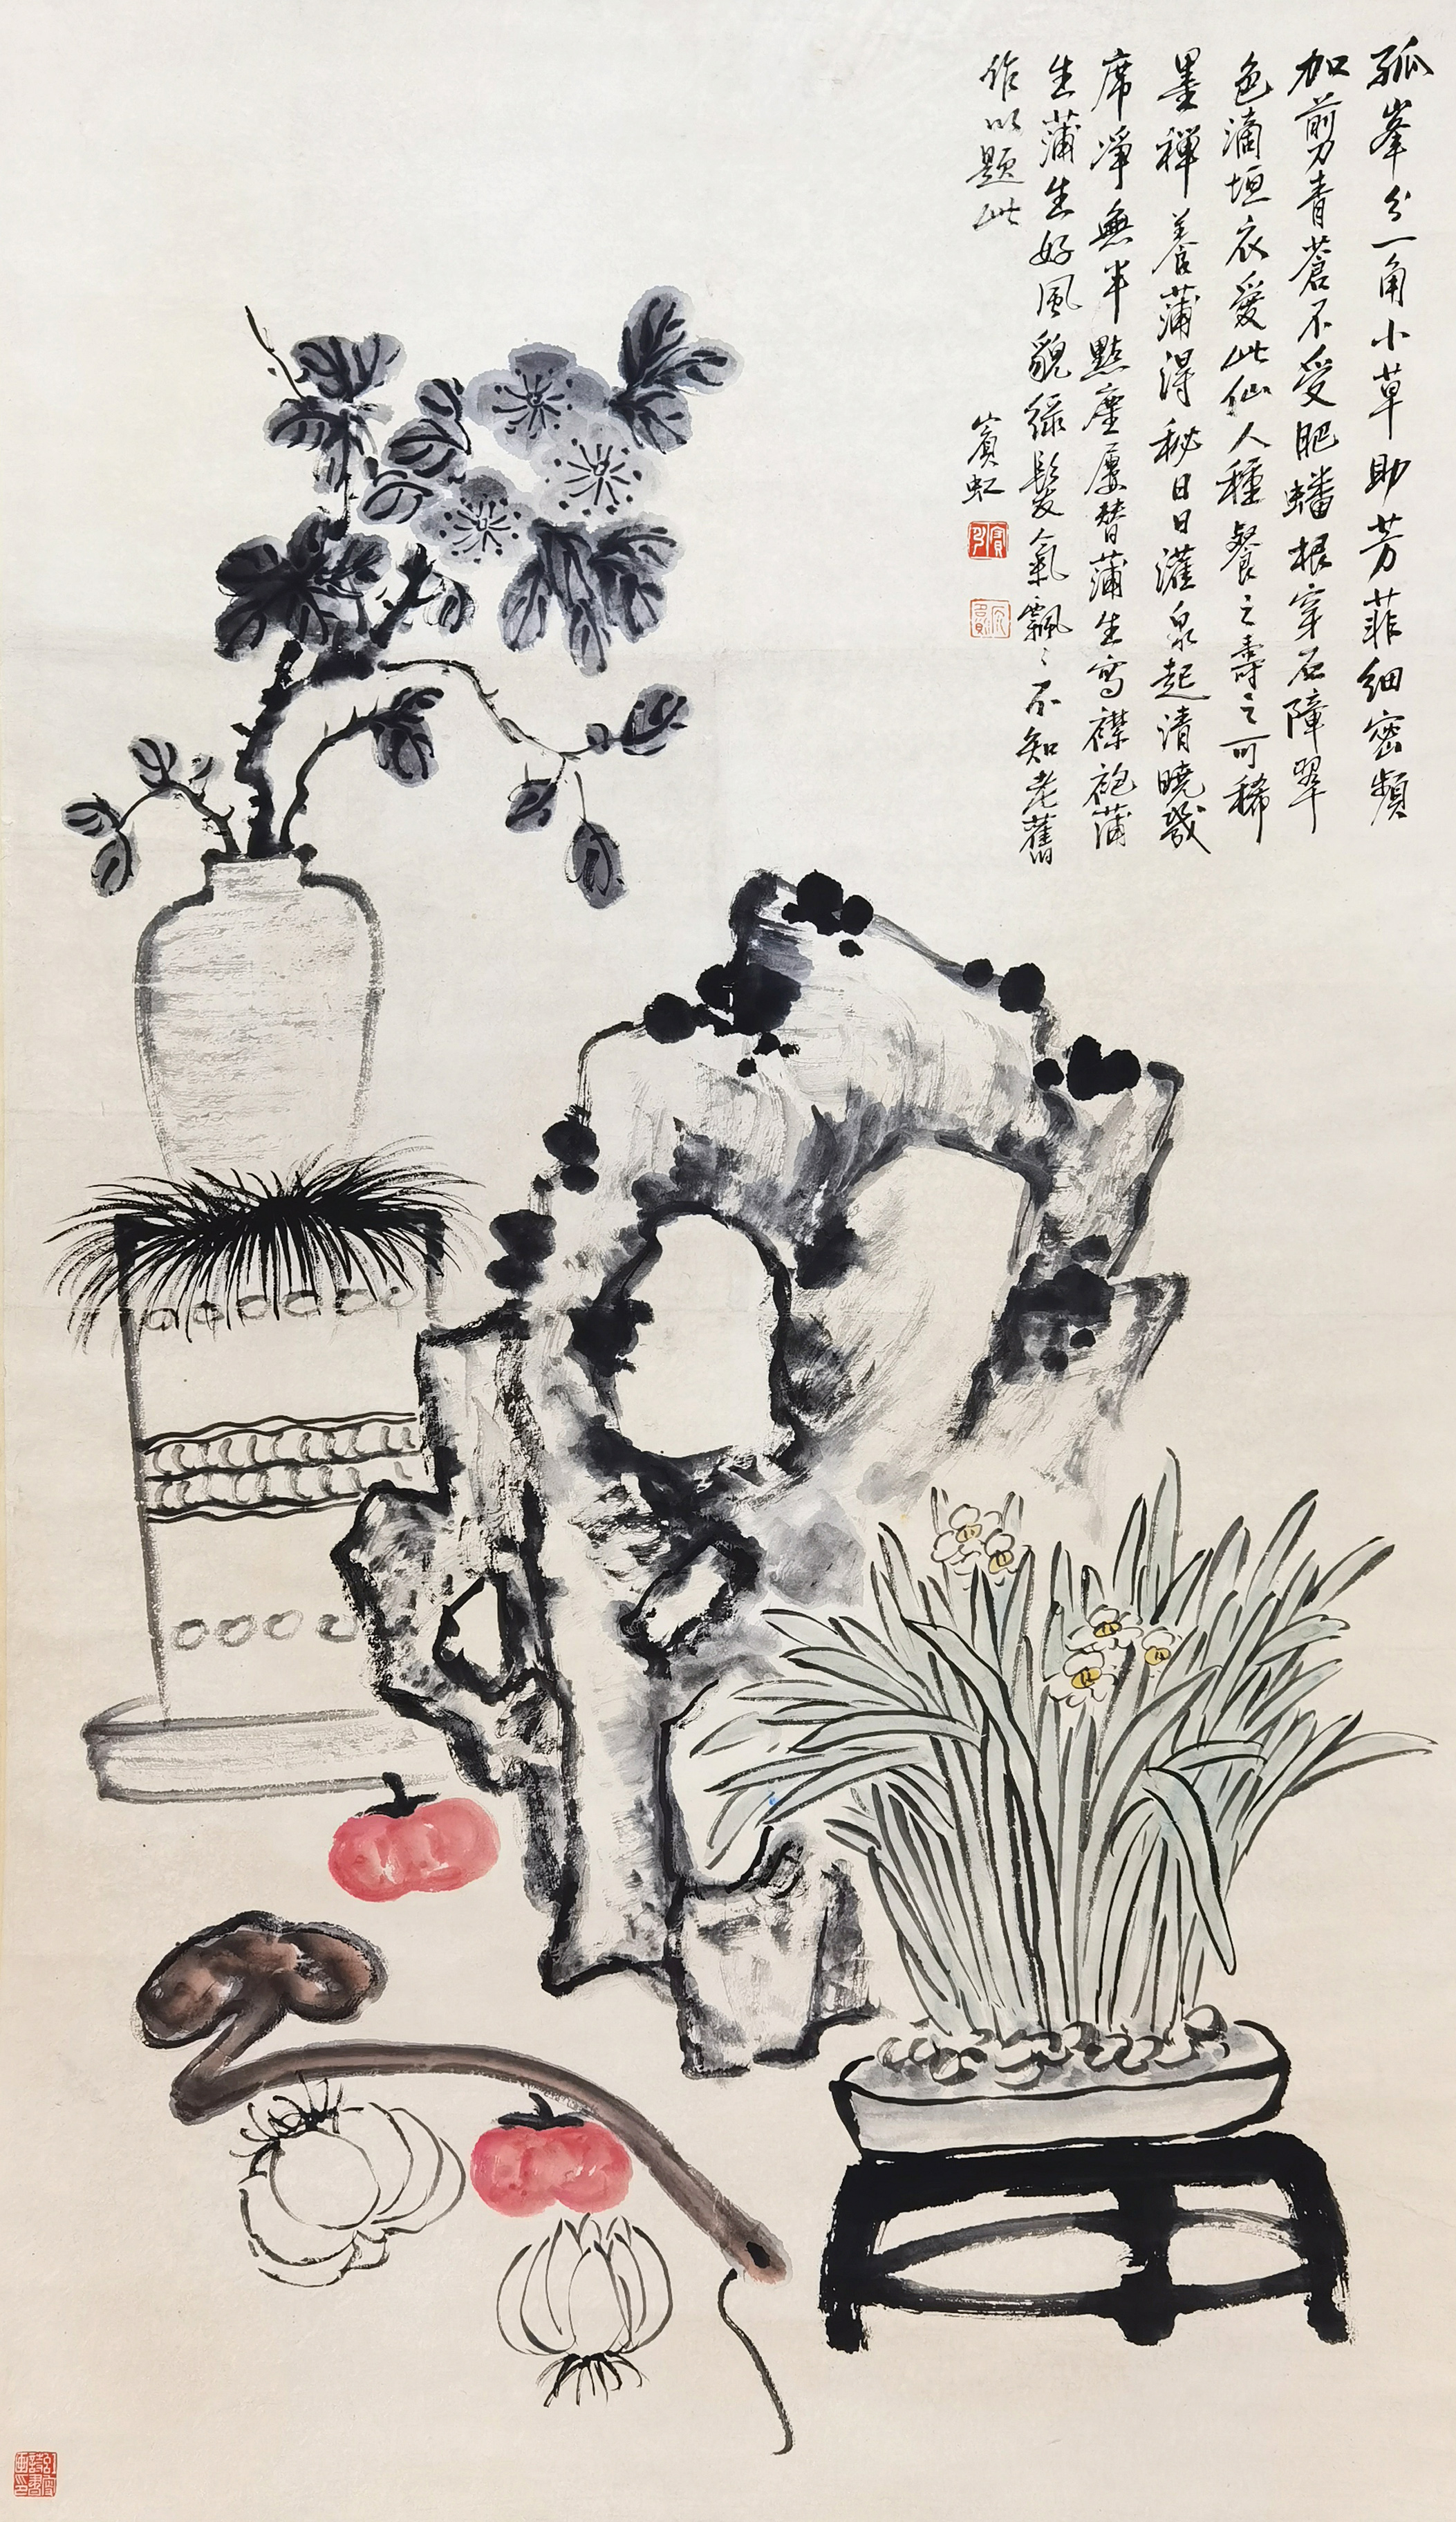 孤峯分一角小草助芳菲細密頻
加剪青蒼不受肥蟠根穿石障翠
色滴垣衣愛此仙人種餐之壽之可稀
墨禪養蒲得秘日日灌泉起清曉幾
席淨無半點塵屢替蒲生寫襟袍蒲
生蒲生好風貌綠鬂氣飄〻不知老舊
作以題此
賓虹